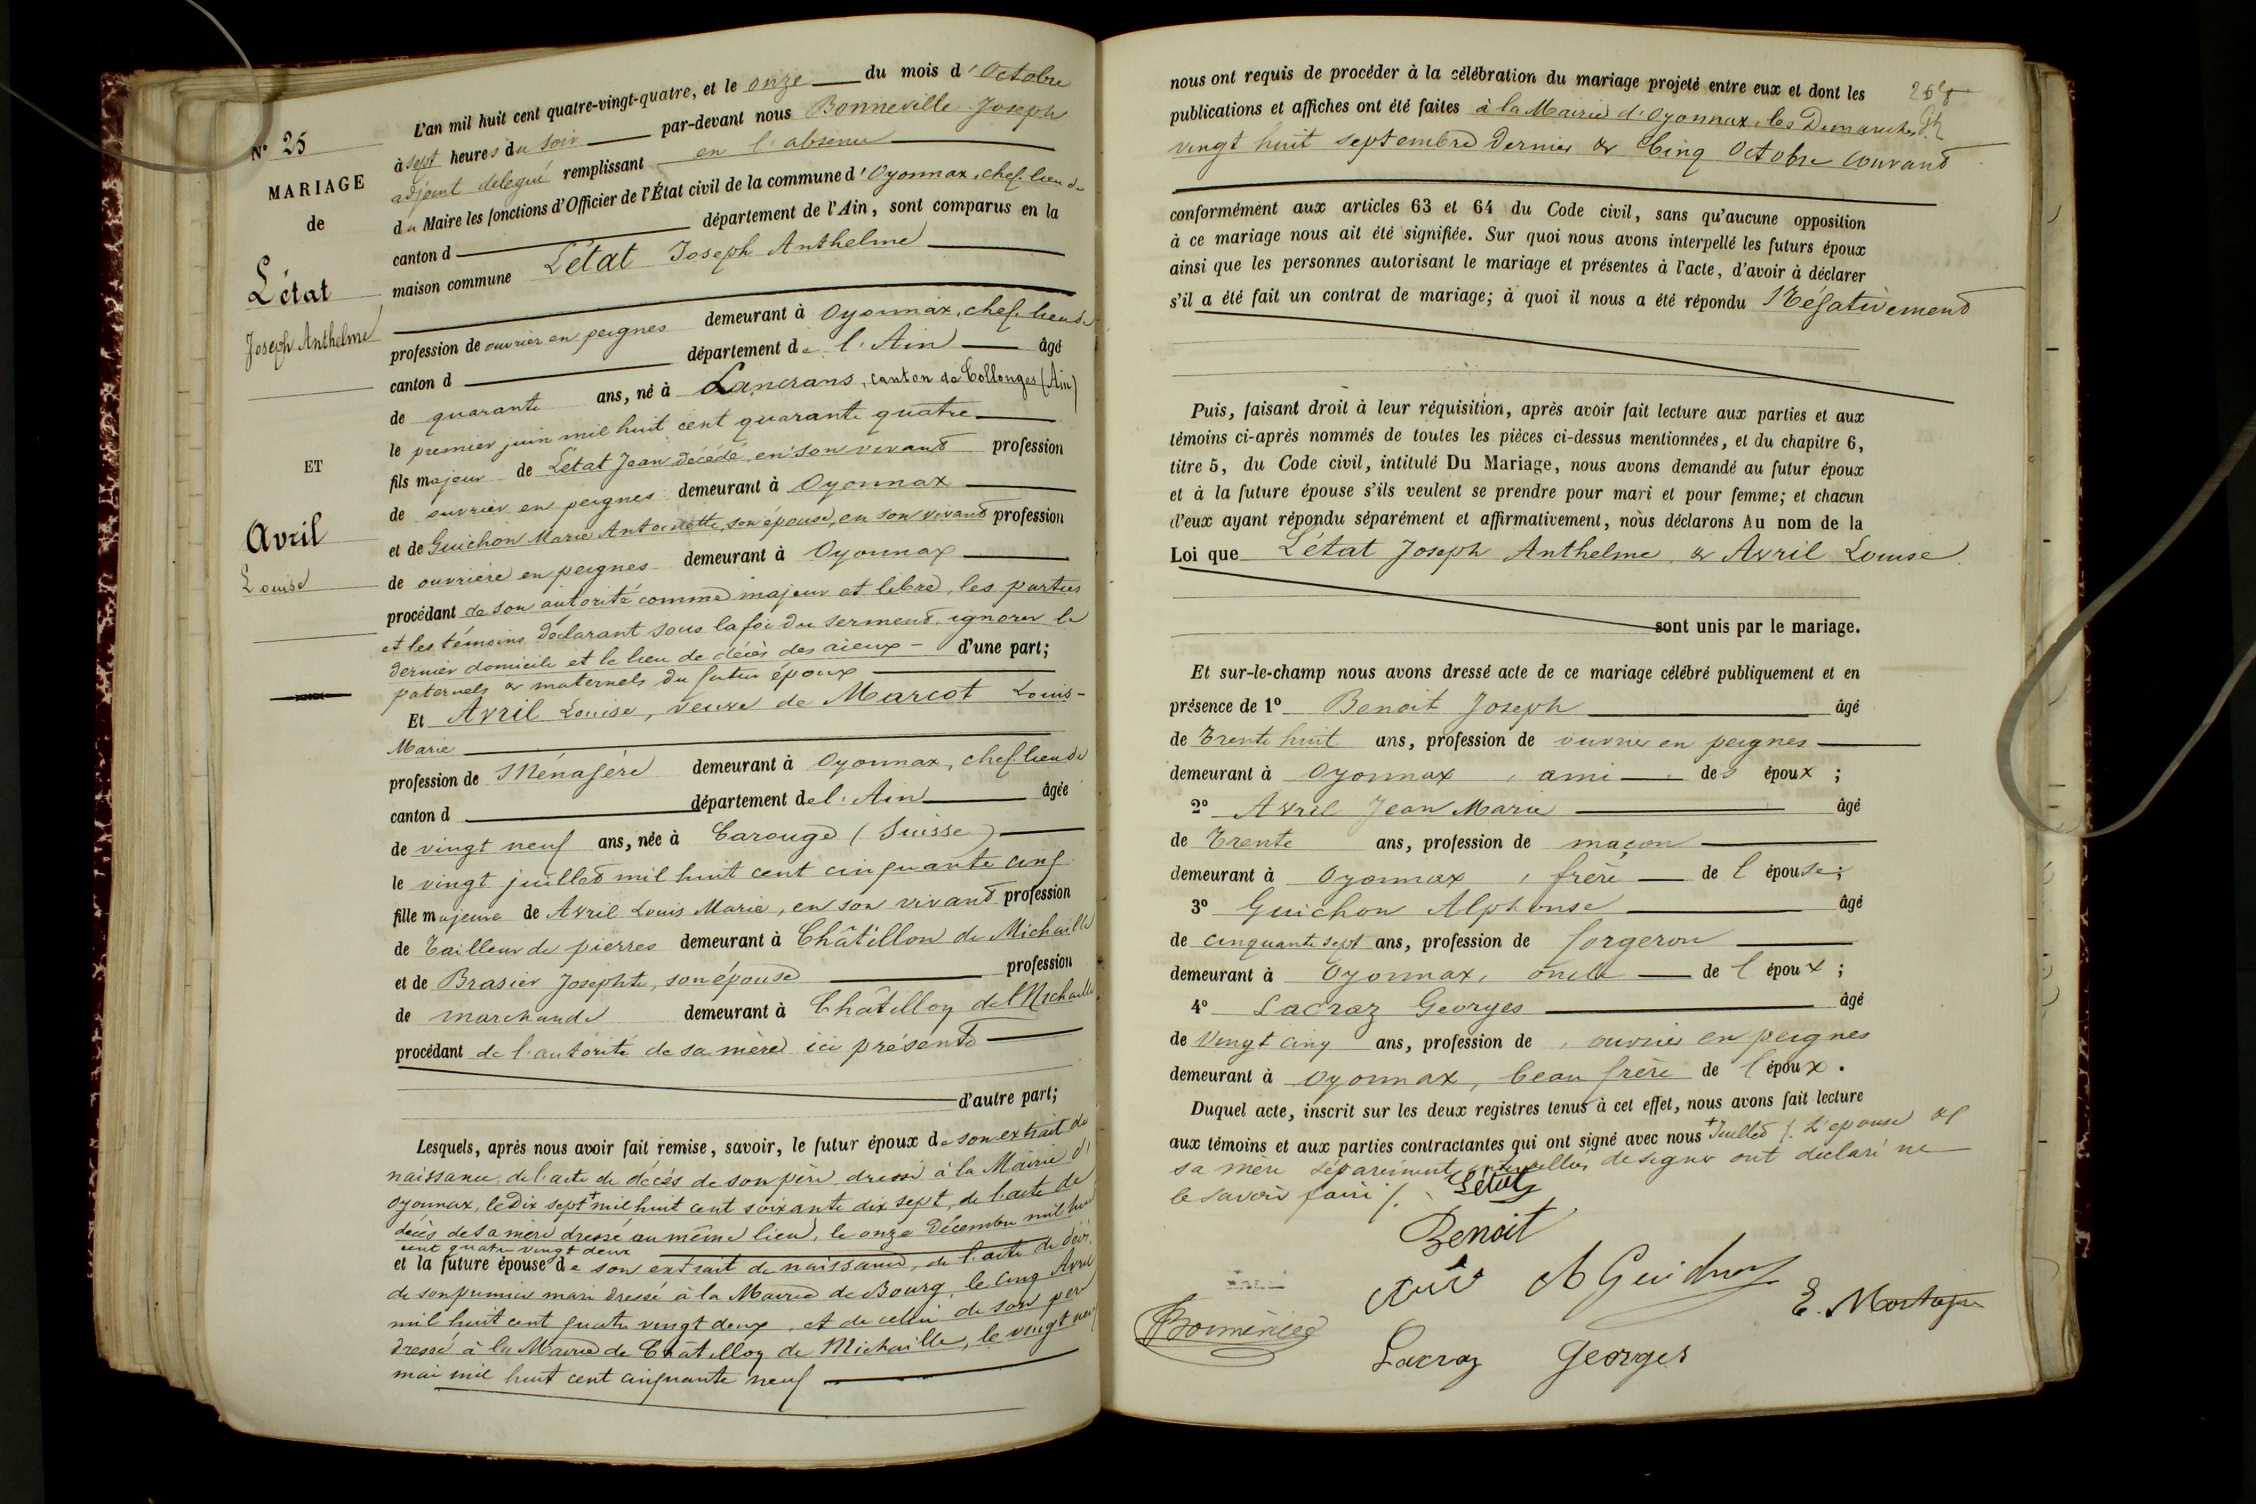 N° 25
MARIAGE
de
Létat
Joseph Anthelme
ET
Avril
Louise
L'an mil huit cent quatre-vingt-quatre, et le onze du mois d'Octobre
à sept heures du soir par-devant nous Bonneville Joseph
adjoint délégué remplissant en l'absence
du Maire les fonctions d'Officier de l'État civil de la commune d'Oyonnax, chef-lieu de
canton d département de l'Ain, sont comparus en la
maison commune Létat Joseph Anthelme
profession de ouvrier en peignes demeurant à Oyonnax, chef-lieu de
canton d département de l'Ain âgé
de quarante ans, né à Lancrans, canton de Collonges (Ain)
le premier juin mil huit cent quarante quatre
fils majeur de Létat Jean décédé, en son vivant profession
de ouvrier en peignes demeurant à Oyonnax
et de Guichon Marie Antoinette, son épouse, en son vivant profession
de ouvrière en peignes demeurant à Oyonnax
procédant de son autorité comme majeur et libre, les parties
et les témoins déclarant sous la foi du serment ignorer le
dernier domicile et le lieu de décès des aieux d'une part;
paternels & maternels du futur époux
Et Avril Louise, veuve de Marcot Louis-
Marie
profession de Ménagère demeurant à Oyonnax, chef-lieu de
canton d département de l'Ain âgée
de vingt neuf ans, née à Carouge (Suisse)
le vingt juillet mil huit cent cinquante cinq
fille majeure de Avril Louis Marie, en son vivant profession
de Tailleur de pierres demeurant à Châtillon de Michaille
et de Brasier Josephte, son épouse profession
de marchande demeurant à Châtillon de Michaille
procédant de l'autorité de sa mère ici présente
d'autre part;
Lesquels, après nous avoir fait remise, savoir, le futur époux de son extrait de
naissance, de l'acte de décès de son père dressé à la Mairie d'
Oyonnax, le Dix sept + mil huit cent soixante dix sept, de l'acte de
décès de sa mère dressé au même lieu, le onze Décembre mil huit
cent quatre vingt deux
et la future épouse de son extrait de naissance, de l'acte de décès
de son premier mari dressé à la Mairie de Bourg, le cinq Avril
mil huit cent quatre vingt deux, et de celui de son père
dressé à la Mairie de Châtillon de Michaille, le vingt neuf
mai mil huit cent cinquante neuf
nous ont requis de procéder à la célébration du mariage projeté entre eux et dont les
publications et affiches ont été faites à la Mairie d'Oyonnax, les Dimanches
vingt huit septembre dernier & Cinq Octobre courant
conformément aux articles 63 et 64 du Code civil, sans qu'aucune opposition
à ce mariage nous ait été signifiée. Sur quoi nous avons interpellé les futurs époux
ainsi que les personnes autorisant le mariage et présentes à l'acte, d'avoir à déclarer
s'il a été fait un contrat de mariage; à quoi il nous a été répondu Négativement
Puis, faisant droit à leur réquisition, après avoir fait lecture aux parties et aux
témoins ci-après nommés de toutes les pièces ci-dessus mentionnées, et du chapitre 6,
titre 5, du Code civil, intitulé Du Mariage, nous avons demandé au futur époux
et à la future épouse s'ils veulent se prendre pour mari et pour femme; et chacun
d'eux ayant répondu séparément et affirmativement, nous déclarons Au nom de la
Loi que Létat Joseph Anthelme & Avril Louise
sont unis par le mariage.
Et sur-le-champ nous avons dressé acte de ce mariage célébré publiquement et en
présence de 1° Benoit Joseph âgé
de Trente huit ans, profession de ouvrier en peignes
demeurant à Oyonnax, ami des époux;
2° Avril Jean Marie âgé
de Trente ans, profession de maçon
demeurant à Oyonnax, frère de l'épouse;
3° Guichon Alphonse âgé
de cinquante sept ans, profession de forgeron
demeurant à Oyonnax, oncle de l'époux;
4° Lacraz Georges âgé
de Vingt cinq ans, profession de ouvrier en peignes
demeurant à Oyonnax, beau frère de l'époux.
Duquel acte, inscrit sur les deux registres tenus à cet effet, nous avons fait lecture
aux témoins et aux parties contractantes qui ont signé avec nous + Juillet /. L'épouse &
sa mère séparément interpellées de signer ont déclaré ne
le savoir faire /.
Létat
Benoit
A Guichon
Bonneville
Lacraz Georges